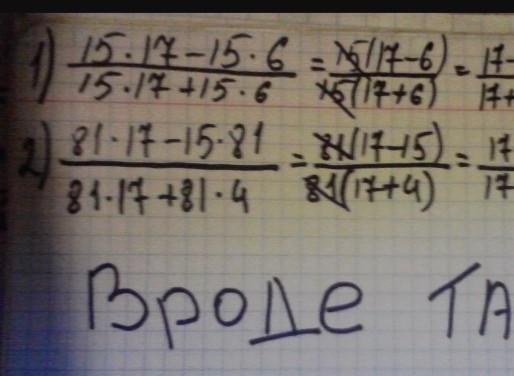 1) (15·17-15·6)/(15·17+15·6) = 15(17-6)/15(17+6) = 17-/17+
2) (81·17-15·81)/(81·17+81·4) = 81(17-15)/81(17+4) = 17/17
Вроде ТА